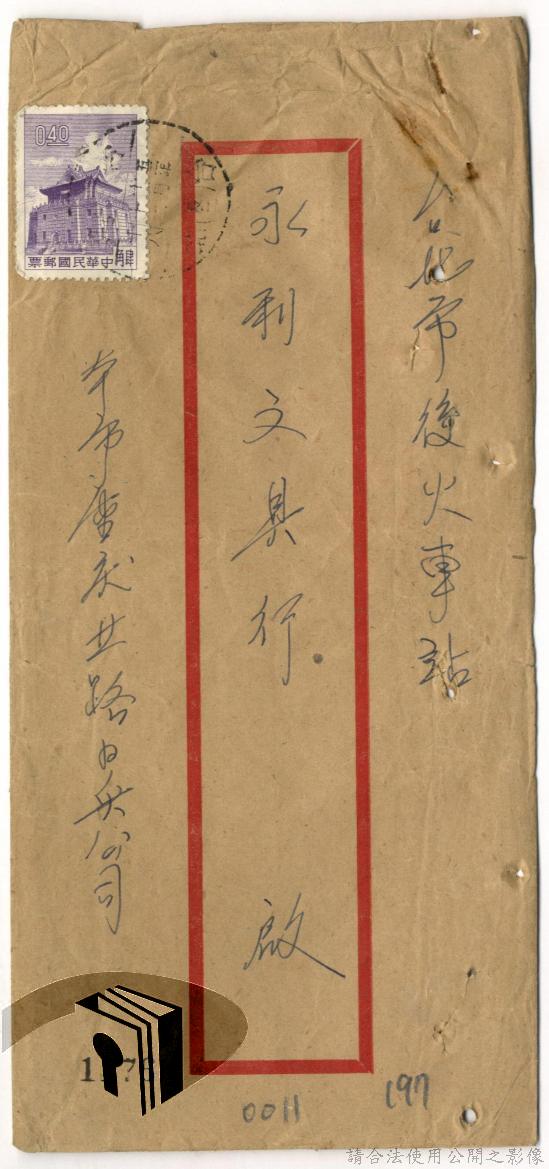 台北市後火車站
永利文具行 啟
本市重慶北路日英公司
0.40
中華民國郵票
197
0011
請合法使用公開之影像